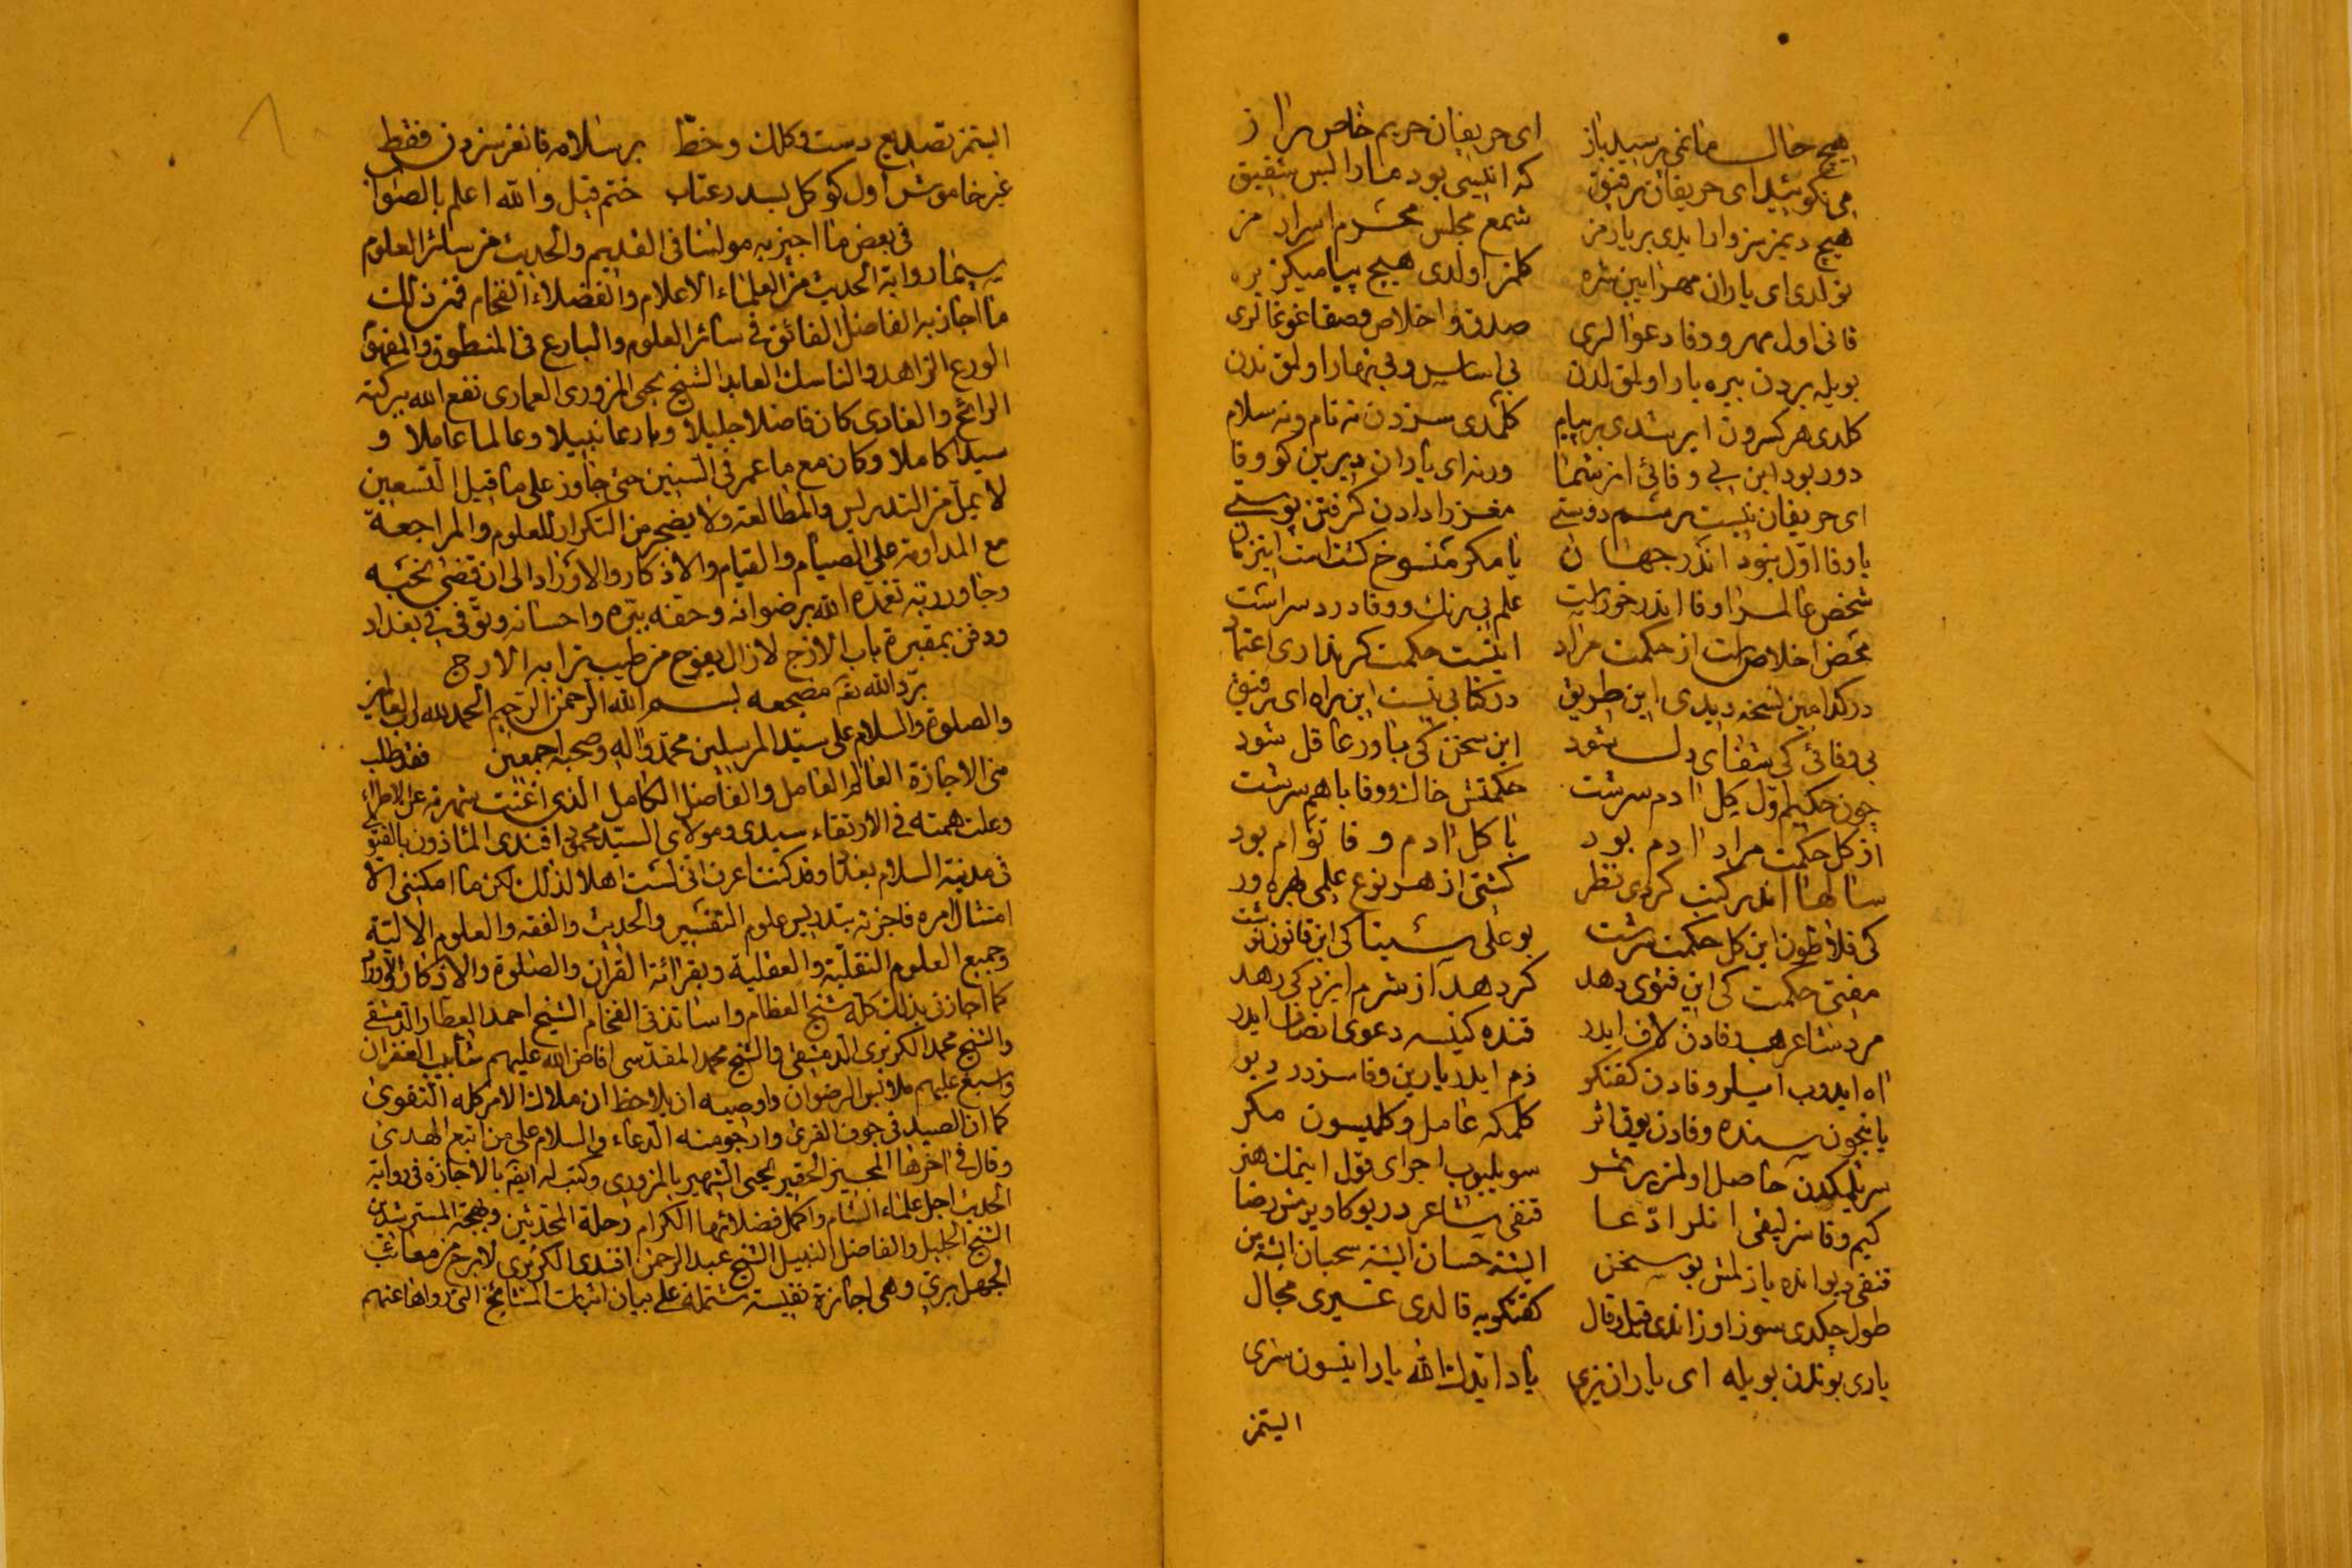 هیچ حال ما نمی پرسید باز ای حریفان حریم خاص راز
می نکوئید ای حریفان رفیق که انیسی بود ما را بس شفیق
هیچ دیمز سز وارایدی بر یارمز شمع مجلس محرم اسرارمز
نولدی ای یاران مهرآیین سزه کلمز اولدی هیچ پیامیکز بزه
قانی اول مهر و وفا دعوالری صدق و اخلاص و صفا غوغالری
بویله بردن بیره یاد اولمق لدن بی اساس وفی
کلدی هر کسدن ایرشدی بر پیام کلمدی سزدن نه نام و نه سلام
دور بود این بی وفائی از شما ورنه ای یاران دیرین کو وفا
ای حریفان نیست رسم دوستی مغز را دادن گرفتن پوستی
یا وفا اول نبود اندر جهان یا مکر منسوخ کشتست این زمان
شخص عالم را وفا اندر خورست علم بی رنک وفا دردسرست
محض اخلاص است از حکمت مراد اینست حکمت کر نداری اعتماد
در کدامین نسخه دیدی این طریق در کتابی نیست این راه ای رفیق
بی وفائی کی شفای دل شود این سخن کی باور عاقل شود
چون حکیم اول کل آدم سرشت حکمتش خاک و وفا باهم سرشت
از کل حکمت مراد آدم بود با کل آدم وفا توام بود
سالها اندر کتب کردی نظر کشتی از هر نوع علمی بهره ور
کی فلاطون این کل حکمت سرشت بو علی سینا کی این قانون نوشت
مفتئ حکمت کی این فتوی دهد کر دهد از شرم ایزد کی دهد
مرد شاعر هب وفادن لاف ایدر قنده کیسه دعوی انصاف ایدر
آه ایدوب ایلر وفادن کفتکو ذم ایدر یارین وفاسزدر دیو
یا نیچون سنده وفادن یوق اثر کلمکه عامل و کلمیسون مکر
سویلمکدن حاصل اولمز بر ثمر سویلیوب اجرای قول ایتمک هنر
کیم وفاسزلیغی انلر ادعا قنقی شاعر در بوکا ویرمش رضا
قنقی دیوانده یازلمش بو سخن ایشته حسان ایشته سحبان ایشته بن
طول چکدی سوز اوزاندی قیل و قال کفتکویه قالدی غیری مجال
یاری بوندن بویله ای یاران بزی یاد ایدک الله یاد ایتسون سزی
ایتمز
ایتمز تصدیع دست و کلک و خط بر سلامه قانغز سزدن فقط
غیر خاموش اول کوکل بسدر عتاب ختم قیل والله اعلم بالصواب
فی بعض ما اجیز به مولنا فی القدیم والحدیث من سائر العلوم
سیما روایة الحدیث من العلماء الاعلام والفضلاء الفخام فمن ذلك
ما اجاز به الفاضل الفائق فی سائر العلوم والبارع فی المنطوق والمفهوم
الورع الزاهد والناسك العابد الشیخ یحیی المزوری العمادی نفع الله ببرکته
الرائح والغادی کان فاضلا جلیلا وبارعا نبیلا وعالما عاملا و
سیدا کاملا وکان مع ما عمر فی السنین حتی جاوز علی ما قیل التسعین
لا یمل من التدریس والمطالعة ولا یضجر من التکرار للعلوم والمراجعة
مع المداومة علی الصیام والقیام والاذکار والاوراد الی ان قضی نحبه
وجاور ربه تغمده الله برضوانه وحفه ببره واحسانه وتوفی فی بغداد
ودفن بمقبرة باب الازج لازال یفوح من طیب ترابه الارج
برد الله تع مضجعه بسم الله الرحمن الرحیم الحمد لله رب العالمین
والصلوة والسلام علی سید المرسلین محمد وآله وصحبه اجمعین فقد طلب
منی الاجازة العالم العامل والفاضل الکامل الذی اغنت شهرته عن الاطراء
وعلت همته فی الارتقاء سیدی ومولای السید محمود افندی المأذون بالفتوی
فی مدینة السلام بغداد وقد کنت اعرف انی لست اهلا لذلك لکن ما امکننی الا
امتثال امره فاجزته بتدریس علوم التفسیر والحدیث والفقه والعلوم الالیة
وجمیع العلوم النقلیة والعقلیة وبقرائة القرآن والصلوة والاذکار والاوراد
کما اجازنی بذلك کله مشایخی العظام واساتذتی الفخام الشیخ احمد العطار الدمشقی
والشیخ محمد الکزبری الدمشقی والشیخ محمد المقدسی افاض الله علیهم شآبیب الغفران
واسبغ علیهم ملابس الرضوان واوصیه ان یلاحظ ان ملاك الامر کله التقوی
کما ان الصید فی جوف الفری وارجو منه الدعاء والسلام علی من اتبع الهدی
وقال فی آخرها المجیز الحقیر یحیی الشهیر بالمزوری وکتب له ایضا بالاجازة فی روایة
الحدیث اجل علماء الشام واکمل فضلائها الکرام رحلة المحدثین وبهجة المسترشدین
الشیخ الجلیل والفاضل النبیل الشیخ عبد الرحمن افندی الکزبری لا برح من معائب
الجهل بری وهی اجازة نفیسة مشتملة علی بیان اثبات المشایخ التی رواها عنهم